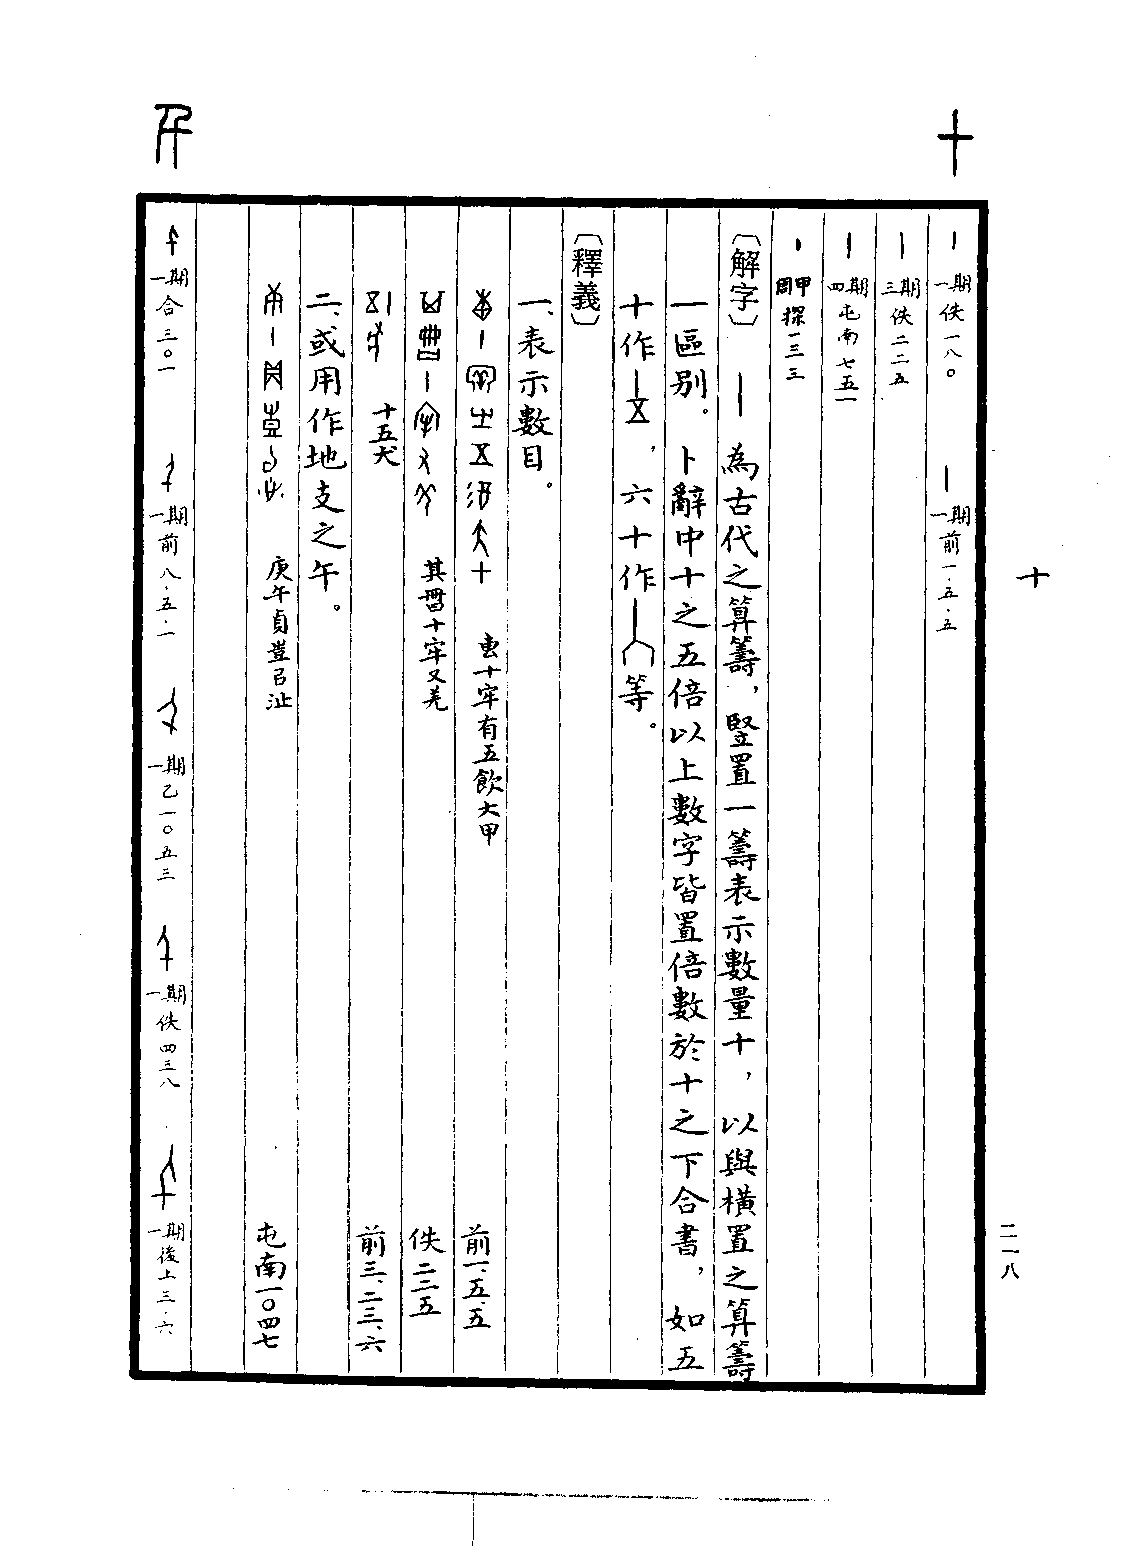 十
一期佚一八〇
一期前一·五·五
三期佚二二五
四期屯南七五一
周甲探一三三
〔解字〕丨為古代之算籌，豎置一籌表示數量十，以與橫置之算籌
一區别。卜辭中十之五倍以上數字皆置倍數於十之下合書，如五
十作，六十作等。
〔釋義〕
一、表示數目。
十牢有五飲大甲 前一、五、五
其𠕋十牢又羌 佚二二五
十五犬 前三、二三、六
二、或用作地支之午。
庚午貞豊 屯南一〇四七
千
一期合三〇一
一期前八·五·一
一期乙一〇五三
一期佚四三八
一期後上三·六
十
二一八